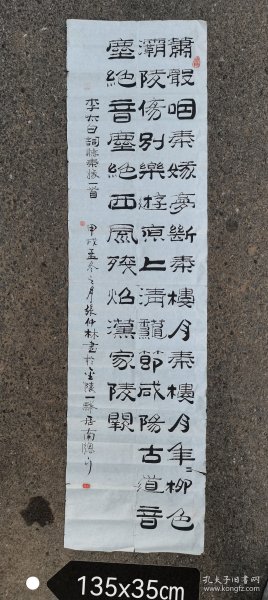 簫聲咽秦娥夢斷秦樓月秦樓月年〻柳色
灞陵傷別樂遊原上清龝節咸陽古道音
塵絕音塵絕西風殘炤漢家陵闕
李太白詞憶秦娥一首
甲戌孟冬之月張仲林書於金陵一醉居南窗
135x35cm
孔夫子旧书网